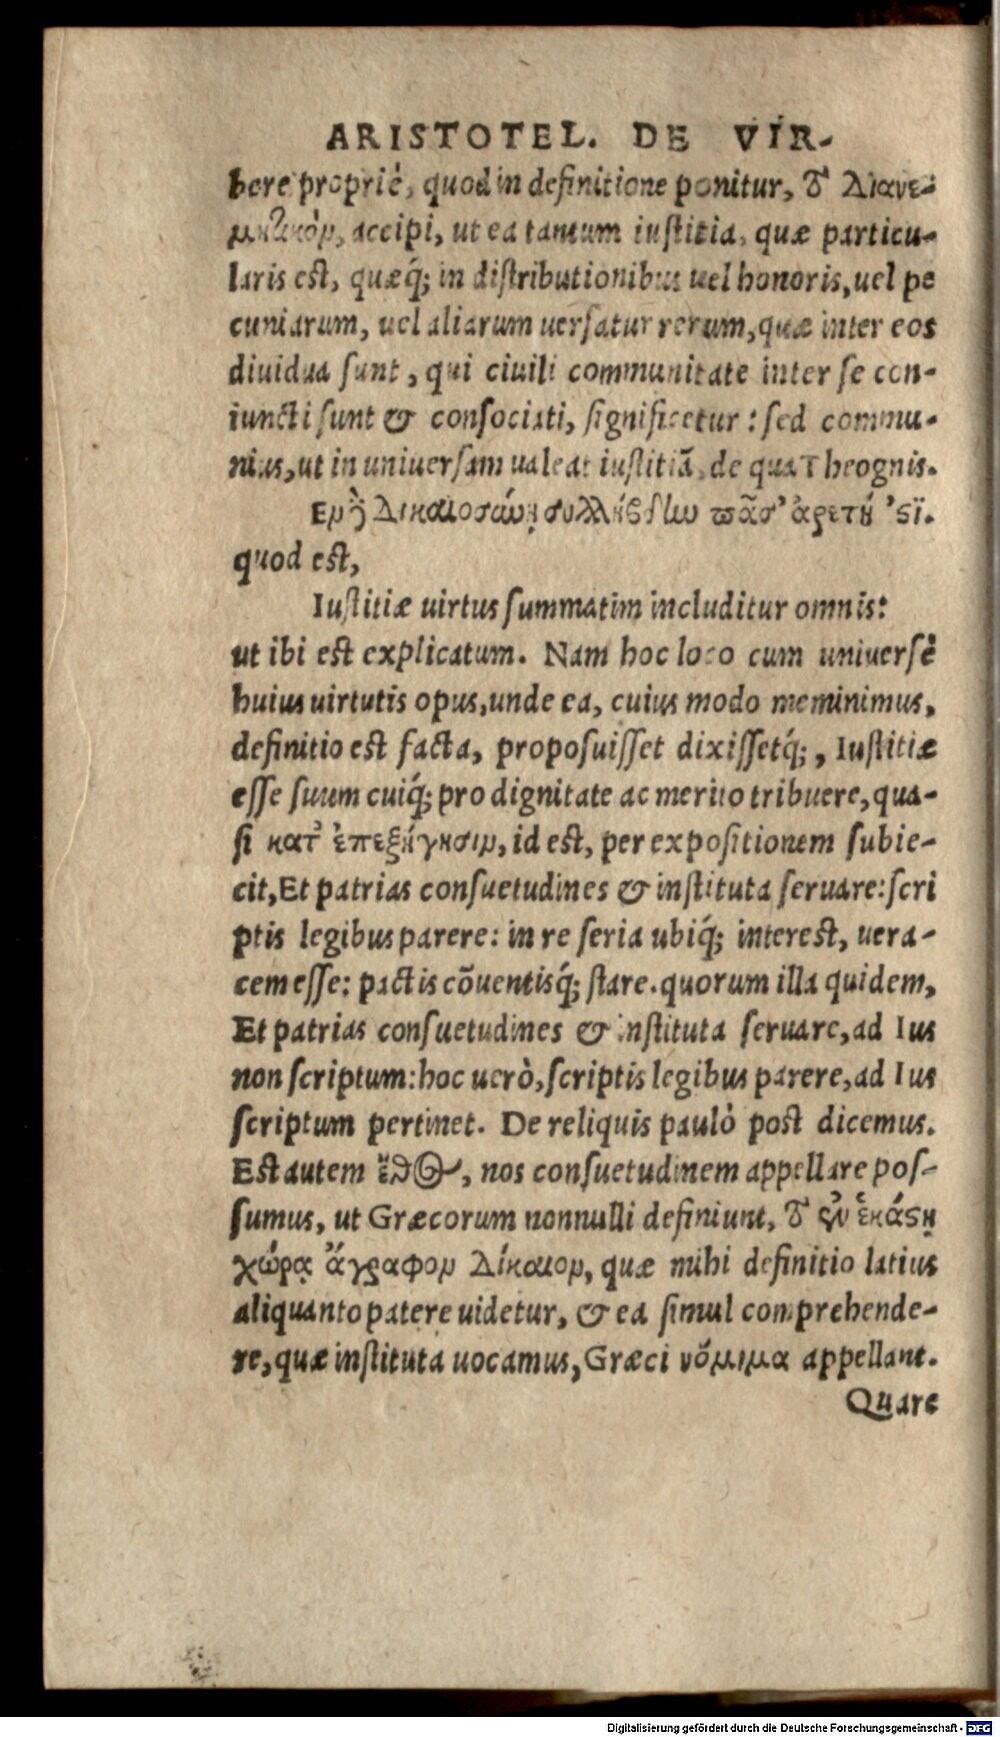 ARISTOTEL. DE VIR-
bere propriè, quod in definitione ponitur, τὸ Διανε-
μητικὸν, accipi, ut ea tantum iustitia, quæ particu-
laris est, quæq́; in distributionibus uel honoris, uel pe
cuniarum, uel aliarum uersatur rerum, quæ inter eos
diuidua sunt, qui ciuili communitate inter se con-
iuncti sunt & consociati, significetur: sed commu-
nius, ut in uniuersam ualeat iustitiā, de qua Theognis.
Εν δὲ Δικαιοσύνῃ συλλήβδην πᾶσ' ἀρετή 'ϛι.
quod est,
Iustitiæ uirtus summatim includitur omnis:
ut ibi est explicatum. Nam hoc loco cum uniuersè
huius uirtutis opus, unde ea, cuius modo meminimus,
definitio est facta, proposuisset dixissetq́;, Iustitiæ
esse suum cuiq́; pro dignitate ac merito tribuere, qua-
si κατ' ἐπεξήγησιν, id est, per expositionem subie-
cit, Et patrias consuetudines & instituta seruare: scri
ptis legibus parere: in re seria ubiq́; interest, uera-
cem esse: pactis cōuentisq́; stare. quorum illa quidem,
Et patrias consuetudines & instituta seruare, ad Ius
non scriptum: hoc uerò, scriptis legibus parere, ad Ius
scriptum pertinet. De reliquis paulò post dicemus.
Est autem ἔθος, nos consuetudinem appellare pos-
sumus, ut Græcorum nonnulli definiunt, τὸ ἐν ἑκάϛῃ
χώρᾳ ἄγραφον Δίκαιον, quæ mihi definitio latius
aliquanto patere uidetur, & ea simul comprehende-
re, quæ instituta uocamus, Græci νόμιμα appellant.
Quare
Digitalisierung gefördert durch die Deutsche Forschungsgemeinschaft - DFG